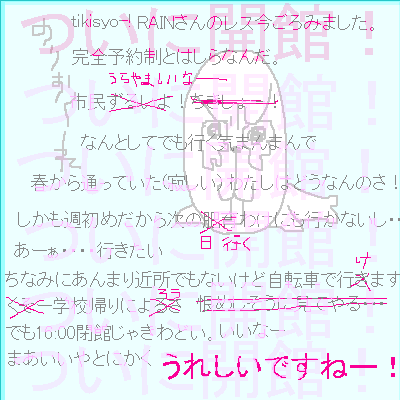 ついに開館！
ついに開館！
ついに開館！
ついに開館！
ついに開館！
ついに開館！
tikisyo-！RAINさんのレス今ごろみました。
完全予約制とはしらなんだ。
うらやましいなー
市民ずるいよ！ちきしょー！
なんとしてでも行く気まんまんで
春から通っていた(寂しい)わたしはどうなんのさ！
しかも週初めだから次の服せわけにも行かないし‥
日 行く
あーぁ‥‥行きたい
ちなみにあんまり近所でもないけど自転車で行きます
け
ろう
学校帰りによる 恨めしそうに見てやる…
でも16:00閉館じゃきわとい。いいなー
まあいいやとにかく
うれしいですねー！